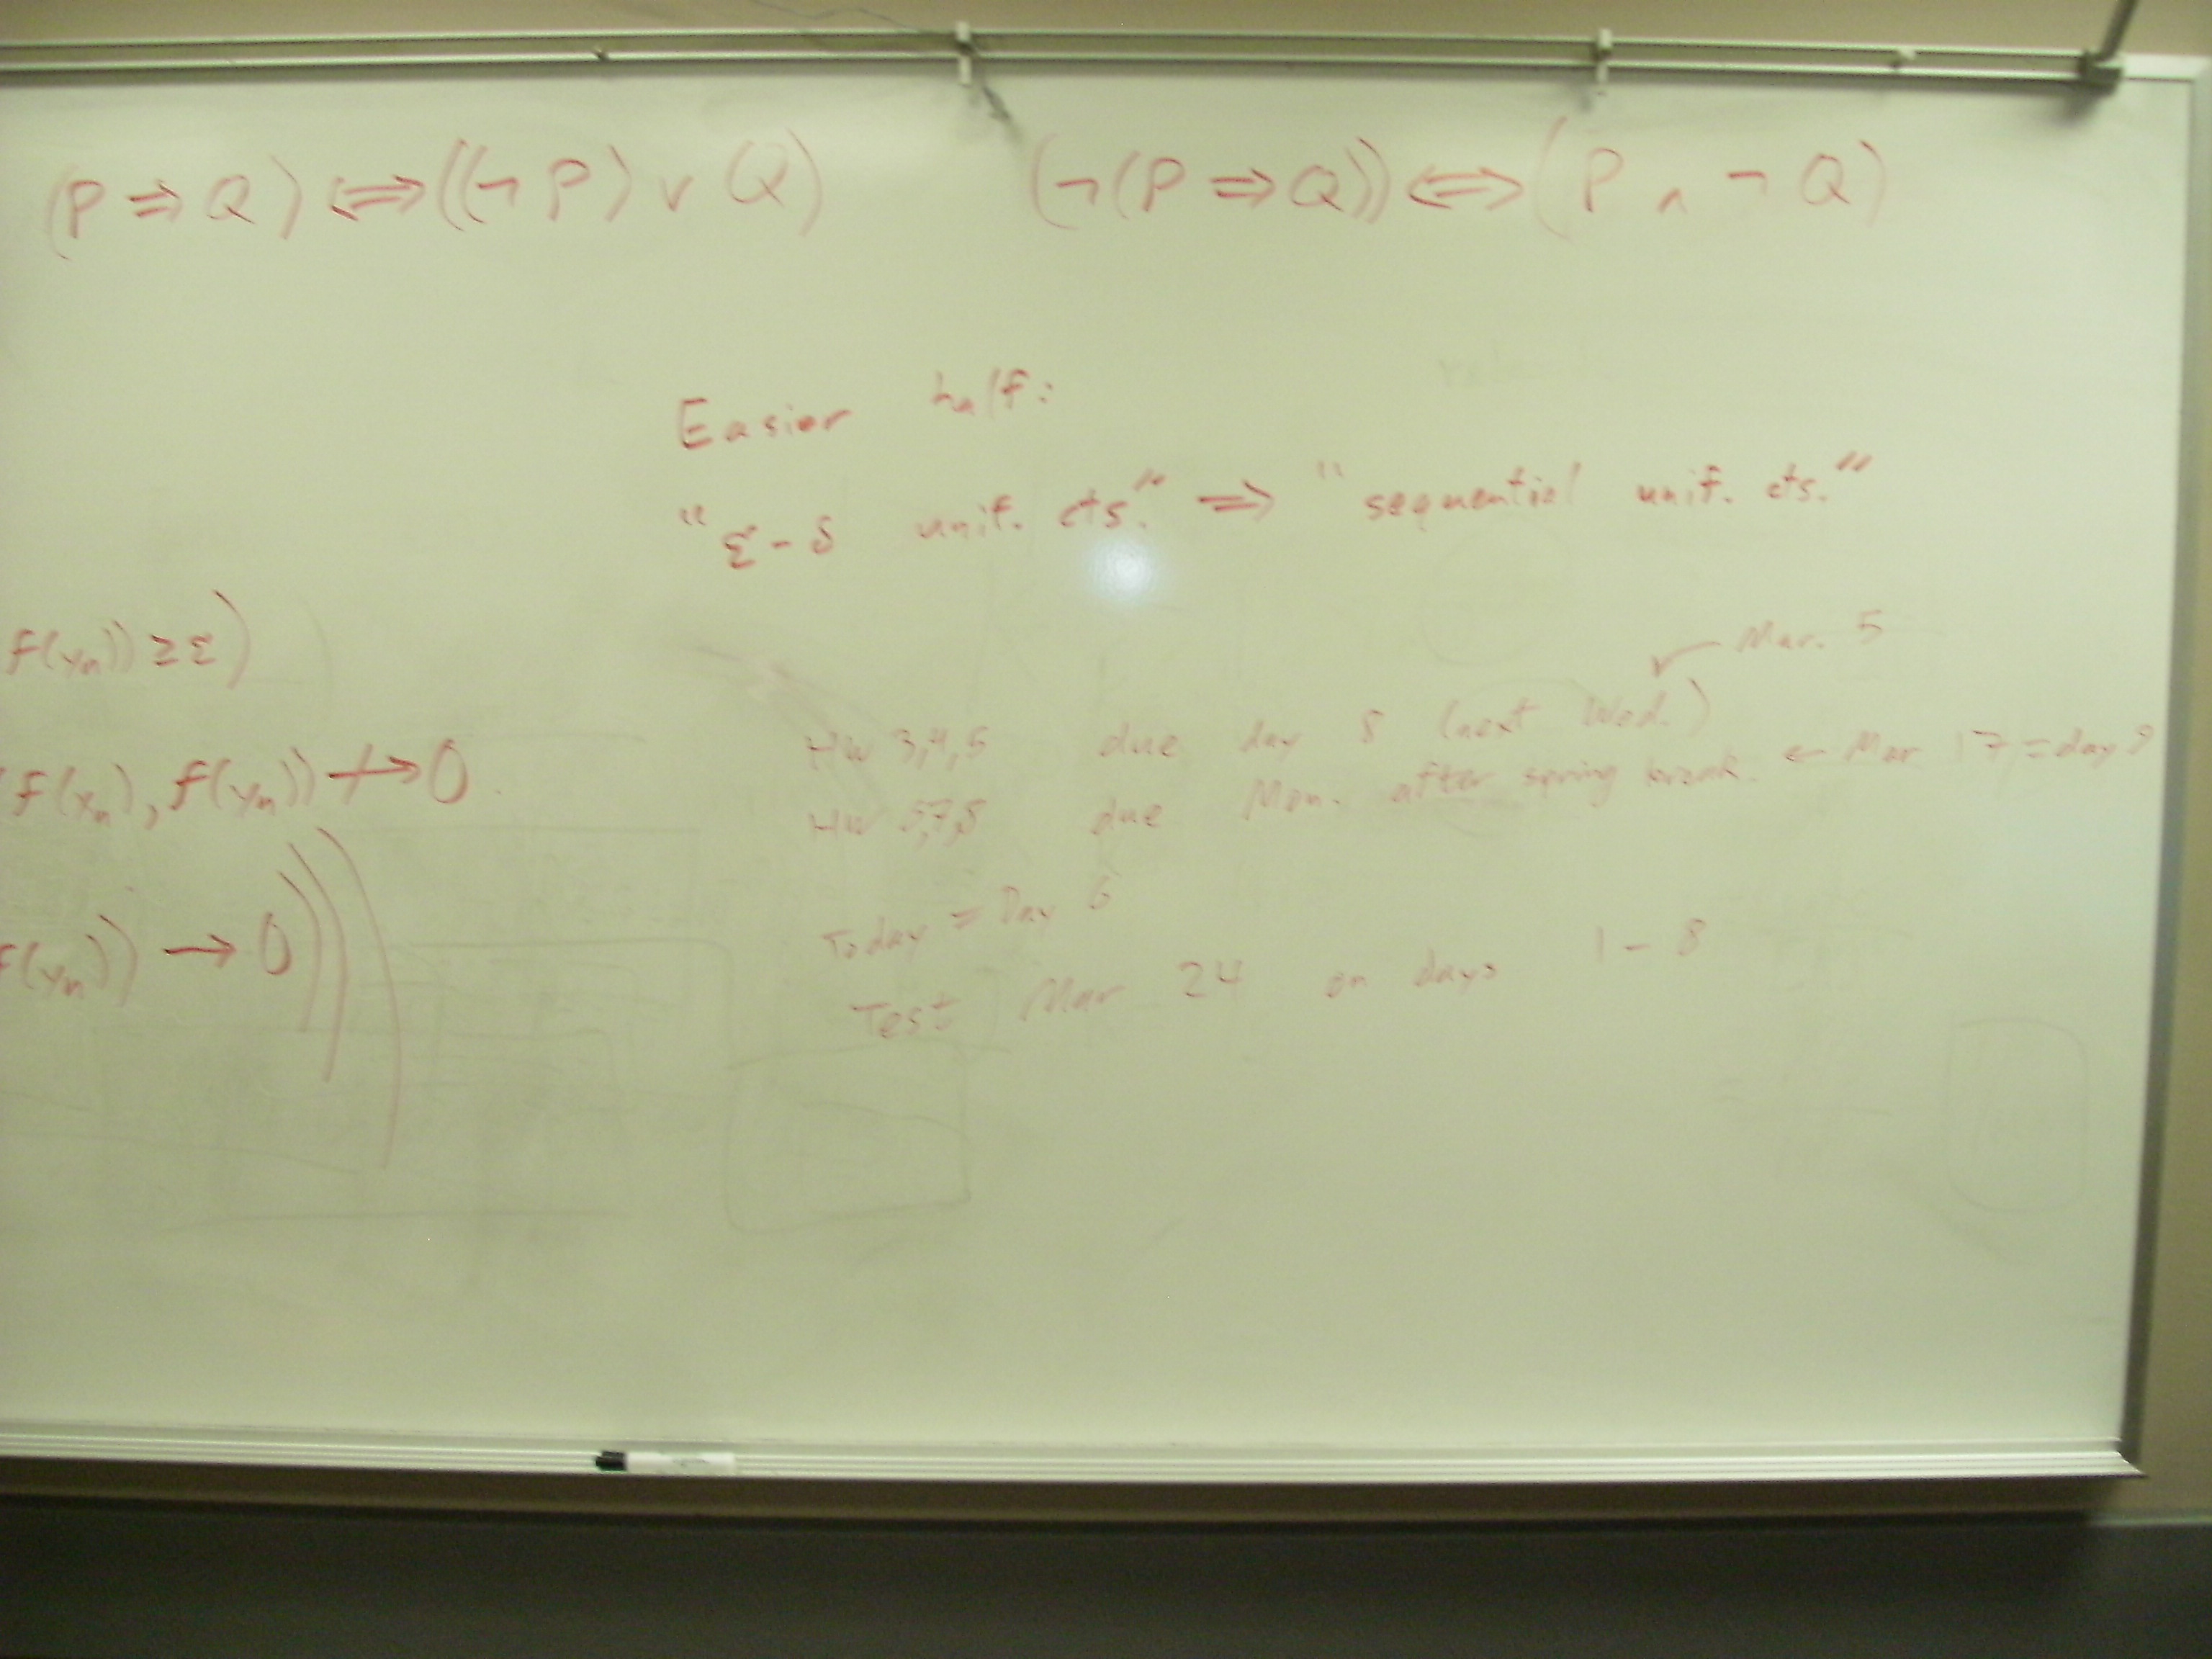 (P ⇒ Q) ⇔ ((¬ P) ∨ Q) (¬(P ⇒ Q)) ⇔ (P ∧ ¬ Q)
Easier half:
"ε-δ unif. cts." ⇒ "sequential unif. cts."
f(yₙ)) ≥ ε)
Mar. 5
HW 3,4,5 due day 8 (next Wed.)
f(xₙ), f(yₙ)) ↛ 0.
HW 6,7,8 due Mon. after spring break. ← Mar 17 = day 9
f(yₙ)) → 0)))
Today = Day 6
Test Mar 24 on days 1 - 8